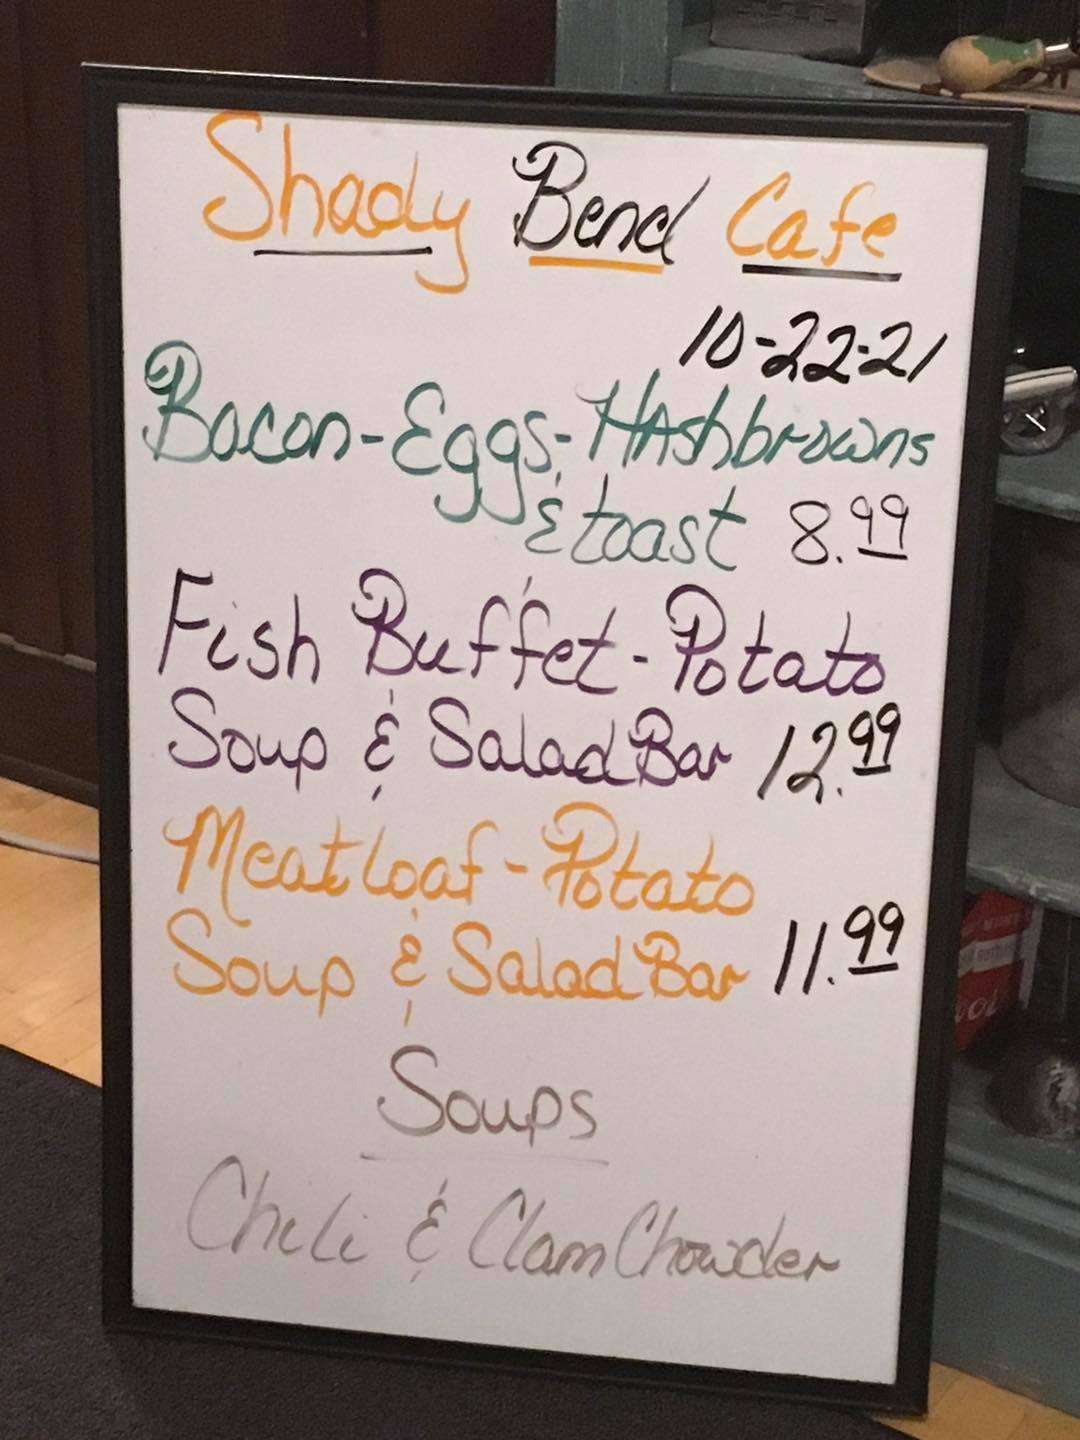 Shady Bend Cafe
10-22-21
Bacon-Eggs-Hashbrowns
& toast 8.99
Fish Buffet-Potato
Soup & Salad Bar 12.99
Meatloaf-Potato
Soup & Salad Bar 11.99
Soups
Chili & Clam Chowder